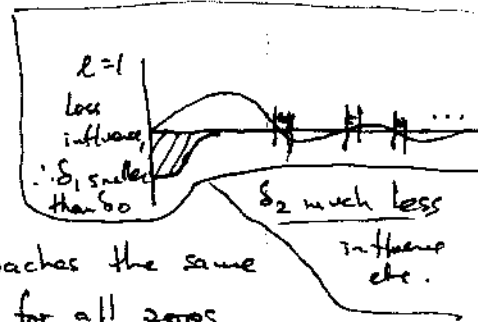 l=1
Less
influence,
∴ δ₁ smaller
than δ₀
...
δ₂ much less
influence
etc.
aches the same
for all zeros